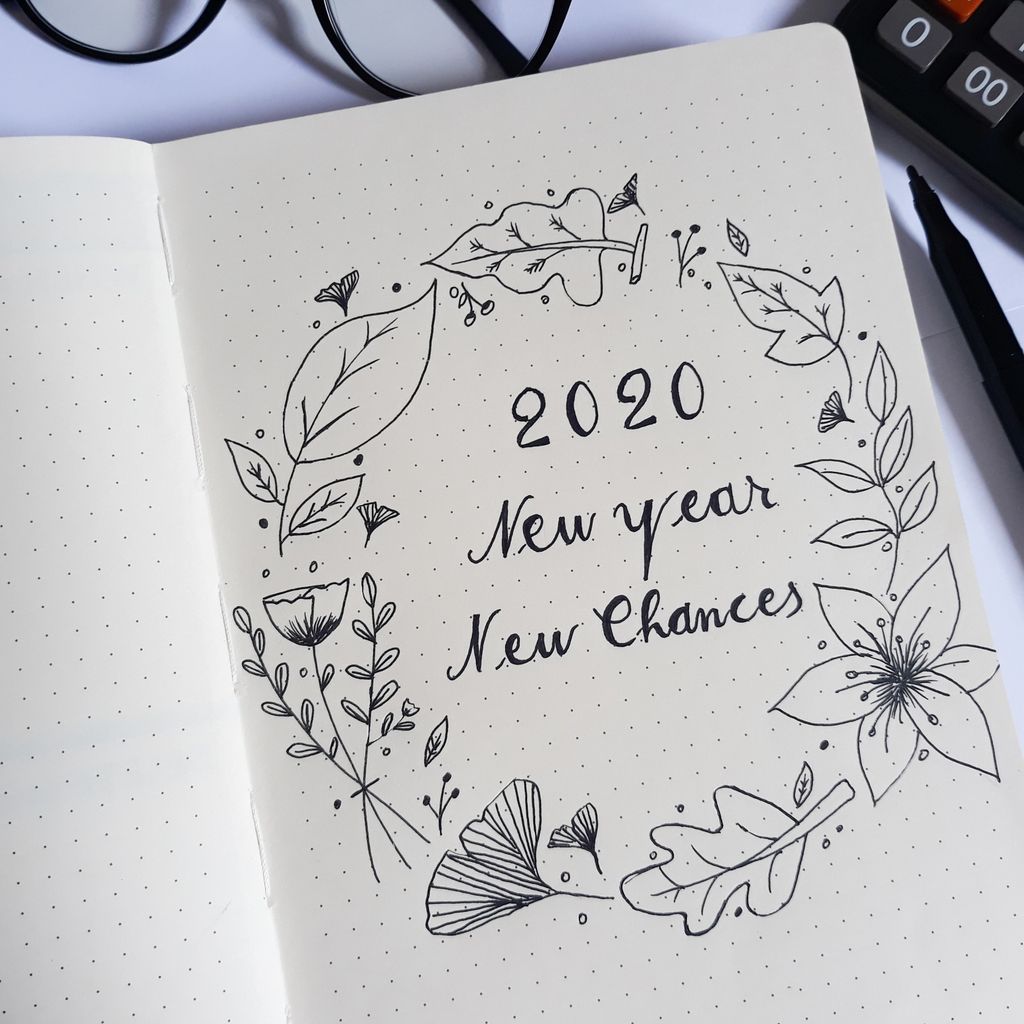 0
00
2020
New year
New Chances